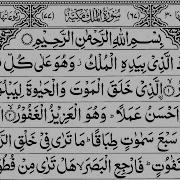 سُوْرَةُ الْمُلْكِ مَكِّيَّةٌ
بِسْمِ اللهِ الرَّحْمٰنِ الرَّحِيْمِ
الَّذِيْ بِيَدِهِ الْمُلْكُ وَهُوَ عَلٰى كُلِّ
الَّذِيْ خَلَقَ الْمَوْتَ وَالْحَيٰوةَ
اَحْسَنُ عَمَلًا وَهُوَ الْعَزِيْزُ الْغَفُوْرُ
سَبْعَ سَمٰوٰتٍ طِبَاقًا مَا تَرٰى فِيْ خَلْقِ
تَفٰوُتٍ فَارْجِعِ الْبَصَرَ هَلْ تَرٰى مِنْ